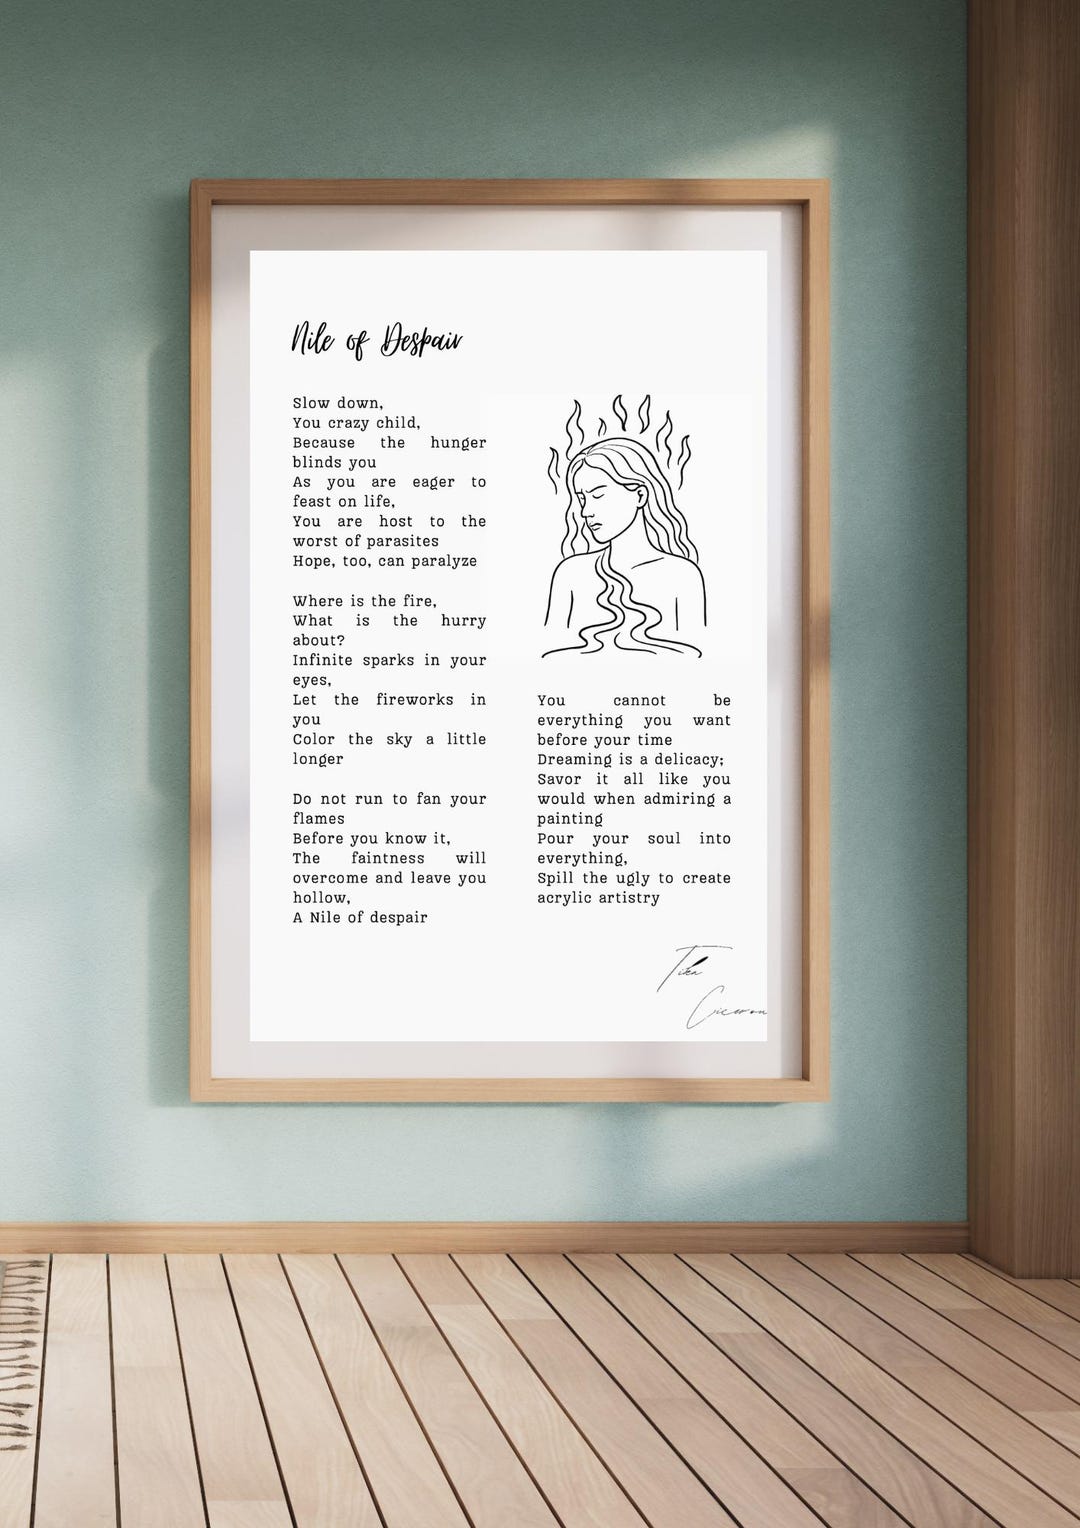 Nile of Despair
Slow down,
You crazy child,
Because the hunger
blinds you
As you are eager to
feast on life,
You are host to the
worst of parasites
Hope, too, can paralyze
Where is the fire,
What is the hurry
about?
Infinite sparks in your
eyes,
Let the fireworks in
you
Color the sky a little
longer
Do not run to fan your
flames
Before you know it,
The faintness will
overcome and leave you
hollow,
A Nile of despair
You cannot be
everything you want
before your time
Dreaming is a delicacy;
Savor it all like you
would when admiring a
painting
Pour your soul into
everything,
Spill the ugly to create
acrylic artistry